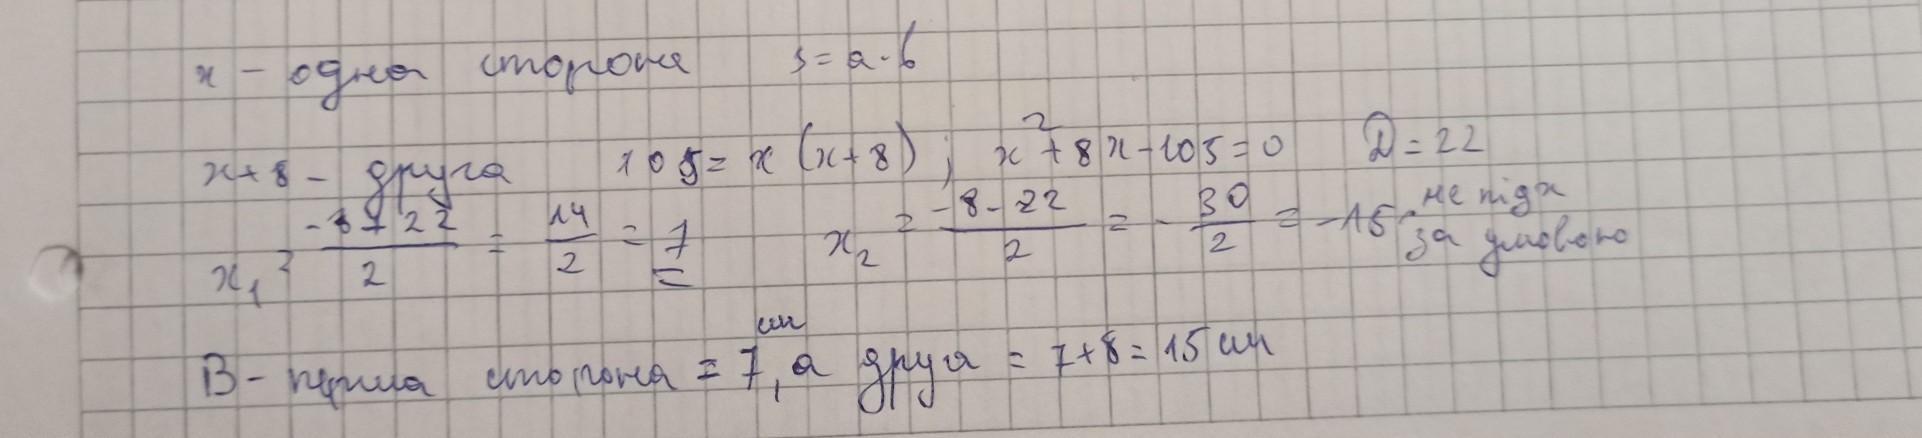 x - одна сторона s = a · b
x+8 - друга 105 = x (x+8) ; x² + 8x - 105 = 0 D = 22
x₁ = (-8+22)/2 = 14/2 = 7 x₂ = (-8-22)/2 = -30/2 = -15 не підх за умовою
В - перша сторона = 7 см, а друга = 7+8 = 15 см